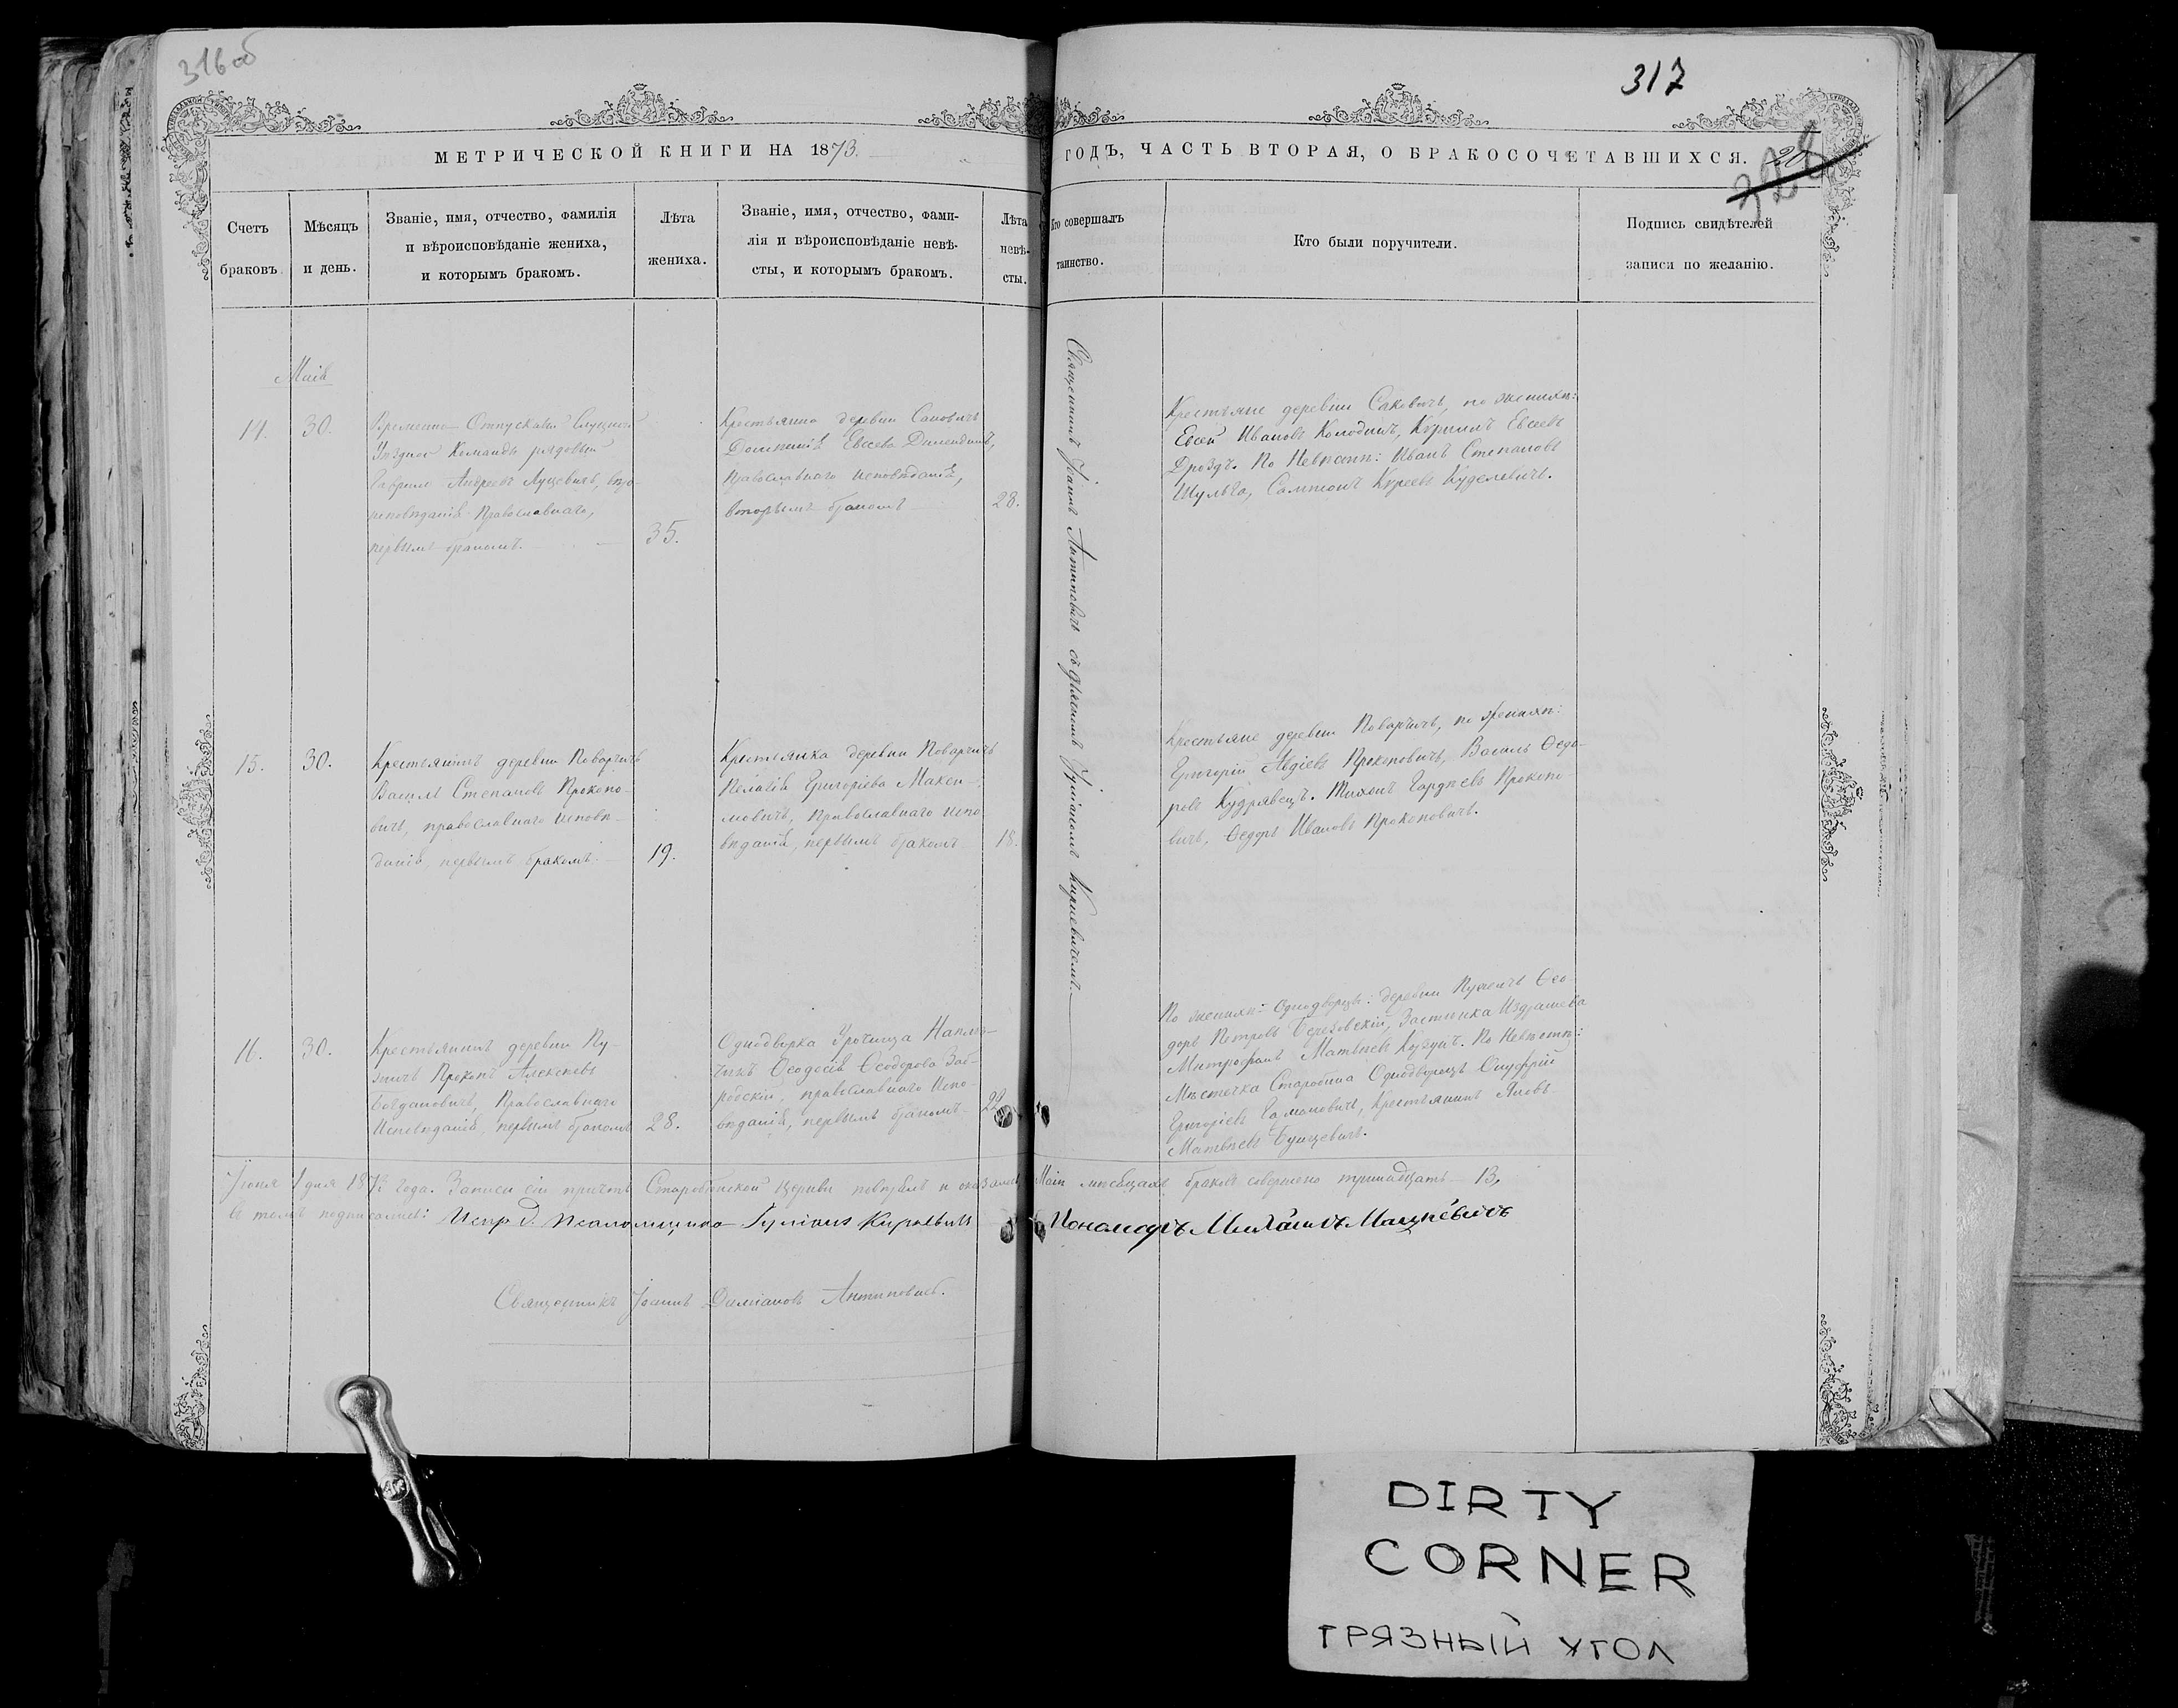 316 об
317
МЕТРИЧЕСКОЙ КНИГИ НА 1873.
ГОДЪ, ЧАСТЬ ВТОРАЯ, О БРАКОСОЧЕТАВШИХСЯ.
Счетъ
браковъ.
Мѣсяцъ
и день.
Званіе, имя, отчество, фамилія
и вѣроисповѣданіе жениха,
и которымъ бракомъ.
Лѣта
жениха.
Званіе, имя, отчество, фами-
лія и вѣроисповѣданіе невѣ-
сты, и которымъ бракомъ.
Лѣта
невѣ-
сты.
Кто совершалъ
таинство.
Кто были поручители.
Подпись свидѣтелей
записи по желанію.
Маія
14.
30.
Временно Отпускной Слуцкой
Уѣздной Команды рядовый
Гавріилъ Андреевъ Луцевичъ, вѣро-
исповѣданія Православнаго,
первымъ бракомъ.
35.
Крестьянка деревни
Евсеева
Православнаго исповѣданія,
вторымъ бракомъ
28.
Священникъ Іоаннъ Антиповичъ съ дьячкомъ Іуліаномъ Киркевичемъ.
Крестьяне деревни Саковичъ, по женихѣ:
Евсей Ивановъ Колодичъ, Евсеевъ
Дроздъ. По Невѣстѣ: Иванъ Степановъ
Шульга, Самсонъ Куделевичъ.
15.
30.
Крестьянинъ деревни Поварчичъ
Василь Степановъ Прокопо-
вичъ, православнаго исповѣ-
данія, первымъ бракомъ.
19.
Крестьянка деревни Поварчичъ
Пелагія Григоріева Макси-
мовичъ, Православнаго испо-
вѣданія, первымъ бракомъ
18.
Крестьяне деревни Поварчичъ, по женихѣ:
Григорій Авдіевъ Прокоповичъ, Василь Ѳедо-
ровъ Кудрявецъ. Тихонъ Гордѣевъ Прокопо
вичъ, Ѳедоръ Ивановъ Прокоповичъ.
16.
30.
Крестьянинъ деревни Пу-
жичъ Прокопъ Алексѣевъ
Богдановичъ, Православнаго
Исповѣданія, первымъ бракомъ
28.
Однодворка Урочища
Ѳеодосія Ѳеодорова
православнаго Испо-
вѣданія, первымъ бракомъ
22
По женихѣ: Однодворцы: деревни Пужичъ Ѳео-
доръ Петровъ Березовскій, Застѣнка Издрашева
Митрофанъ Матвѣевъ По Невѣстѣ:
Мѣстечка Старобина Однодворецъ Онуфрій
Григоріевъ Гамановичъ, Крестьянинъ Яковъ
Матвѣевъ
Іюня 1 дня 1873 года. Записи сіи причтъ Старобинской Церкви повѣрялъ и оказалось Маіи мѣсяцахъ браковъ совершено тринадцать 13,
въ томъ подписались: Испр. д. Псаломщика Іуліанъ Киркевичъ Пономарь Михаилъ Мацкевичъ
Священникъ Іоаннъ Даміановъ Антиповичъ.
DIRTY
CORNER
ГРЯЗНЫЙ УГОЛ